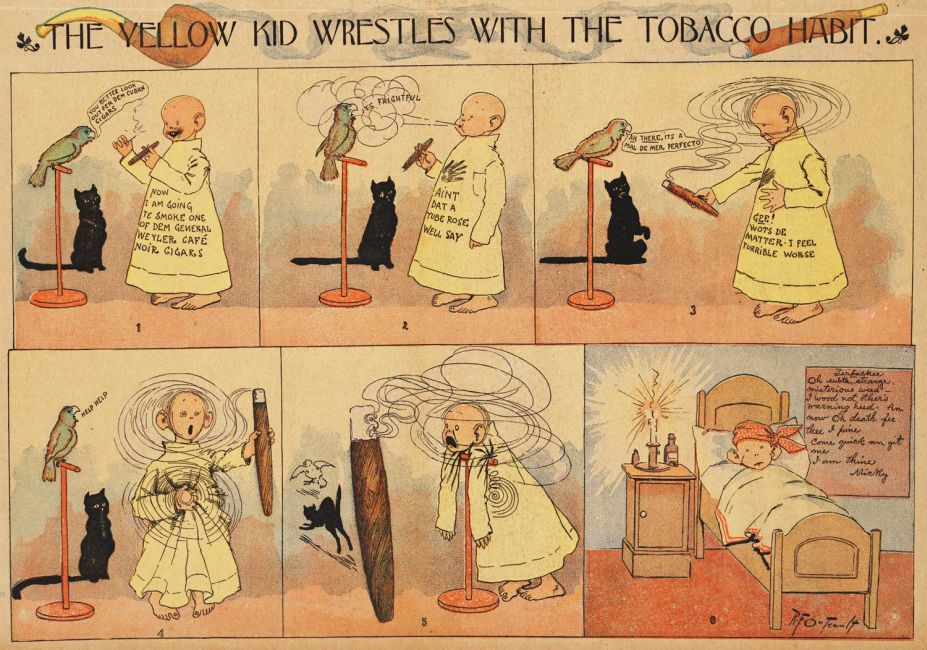 THE YELLOW KID WRESTLES WITH THE TOBACCO HABIT.
YOU BETTER LOOK
OUT FER DEM CUBAN
CIGARS
NOW
I AM GOING
TE SMOKE ONE
OF DEM GENERAL
WEYLER CAFÉ
NOIR CIGARS
1
TS FRIGHTFUL
AINT
DAT A
TUBE ROSE,
WELL SAY
2
AH THERE, ITS A
MAL DE MER PERFECTO
GEE!
WOTS DE
MATTER - I FEEL
TURRIBLE WORSE
3
HELP HELP
4
5
Terbackee
Oh subtle, strange,
misterious weed -
I wood not others
warning heed. An
now Oh death fer
thee I pine
Come quick an git
me
I am thine
Micky
6
R.F. Outcault